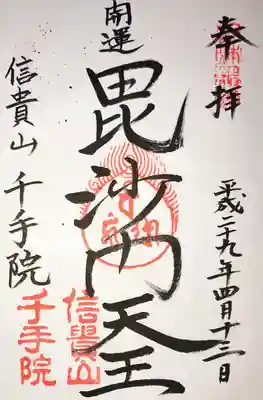 奉拝
平成二十九年四月十三日
開運
毘沙門天王
信貴山 千手院
信貴山
千手院